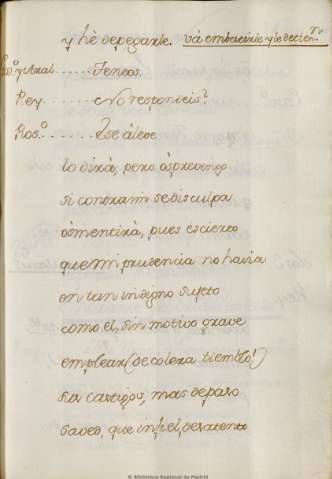 y hè de pegarle. và embestirle y le detienen.
Ro.º y Anal. ...... Teneos.
Rey. ...... No respondeis?
Ros.º ...... Ese áleve
lo dirà, pero os prevengo
si contra mi se disculpa
os mentirà, pues es cierto
que mi prudencia no havia
en tan indigno sujeto
como él, sin motivo grave
emplear (de colera tiemblo!)
sus castigos, mas de paso
saved, que infiel, desatento
© Biblioteca Nacional de Madrid